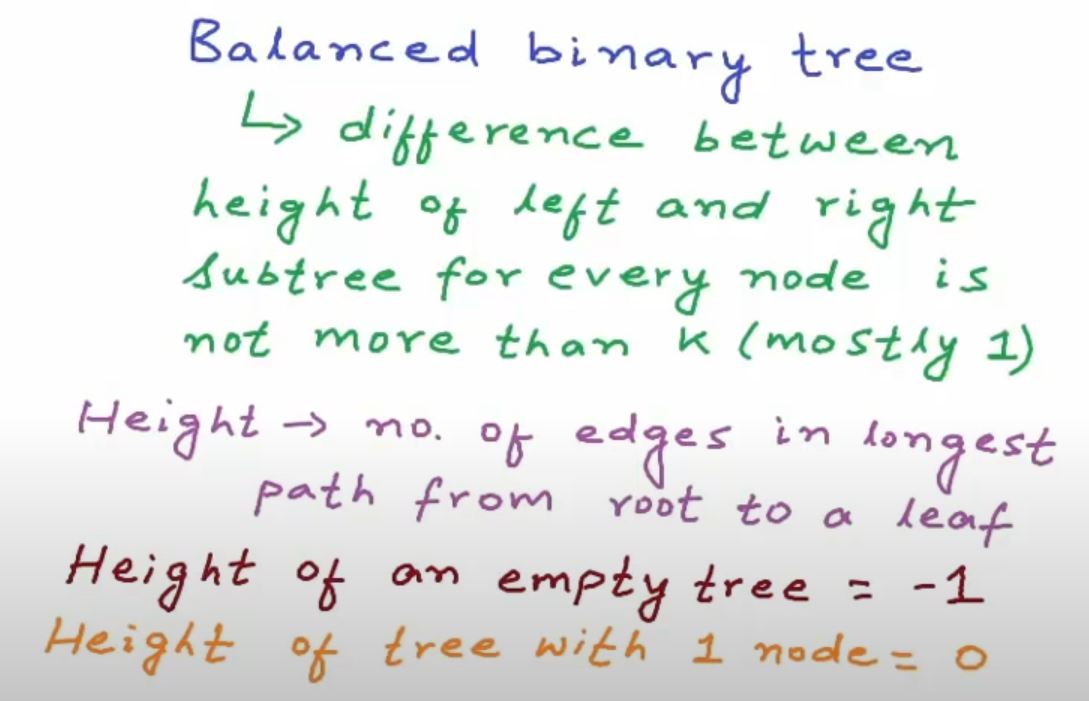 Balanced binary tree
↳ difference between
height of left and right
subtree for every node is
not more than k (mostly 1)
Height → no. of edges in longest
path from root to a leaf
Height of an empty tree = -1
Height of tree with 1 node = 0